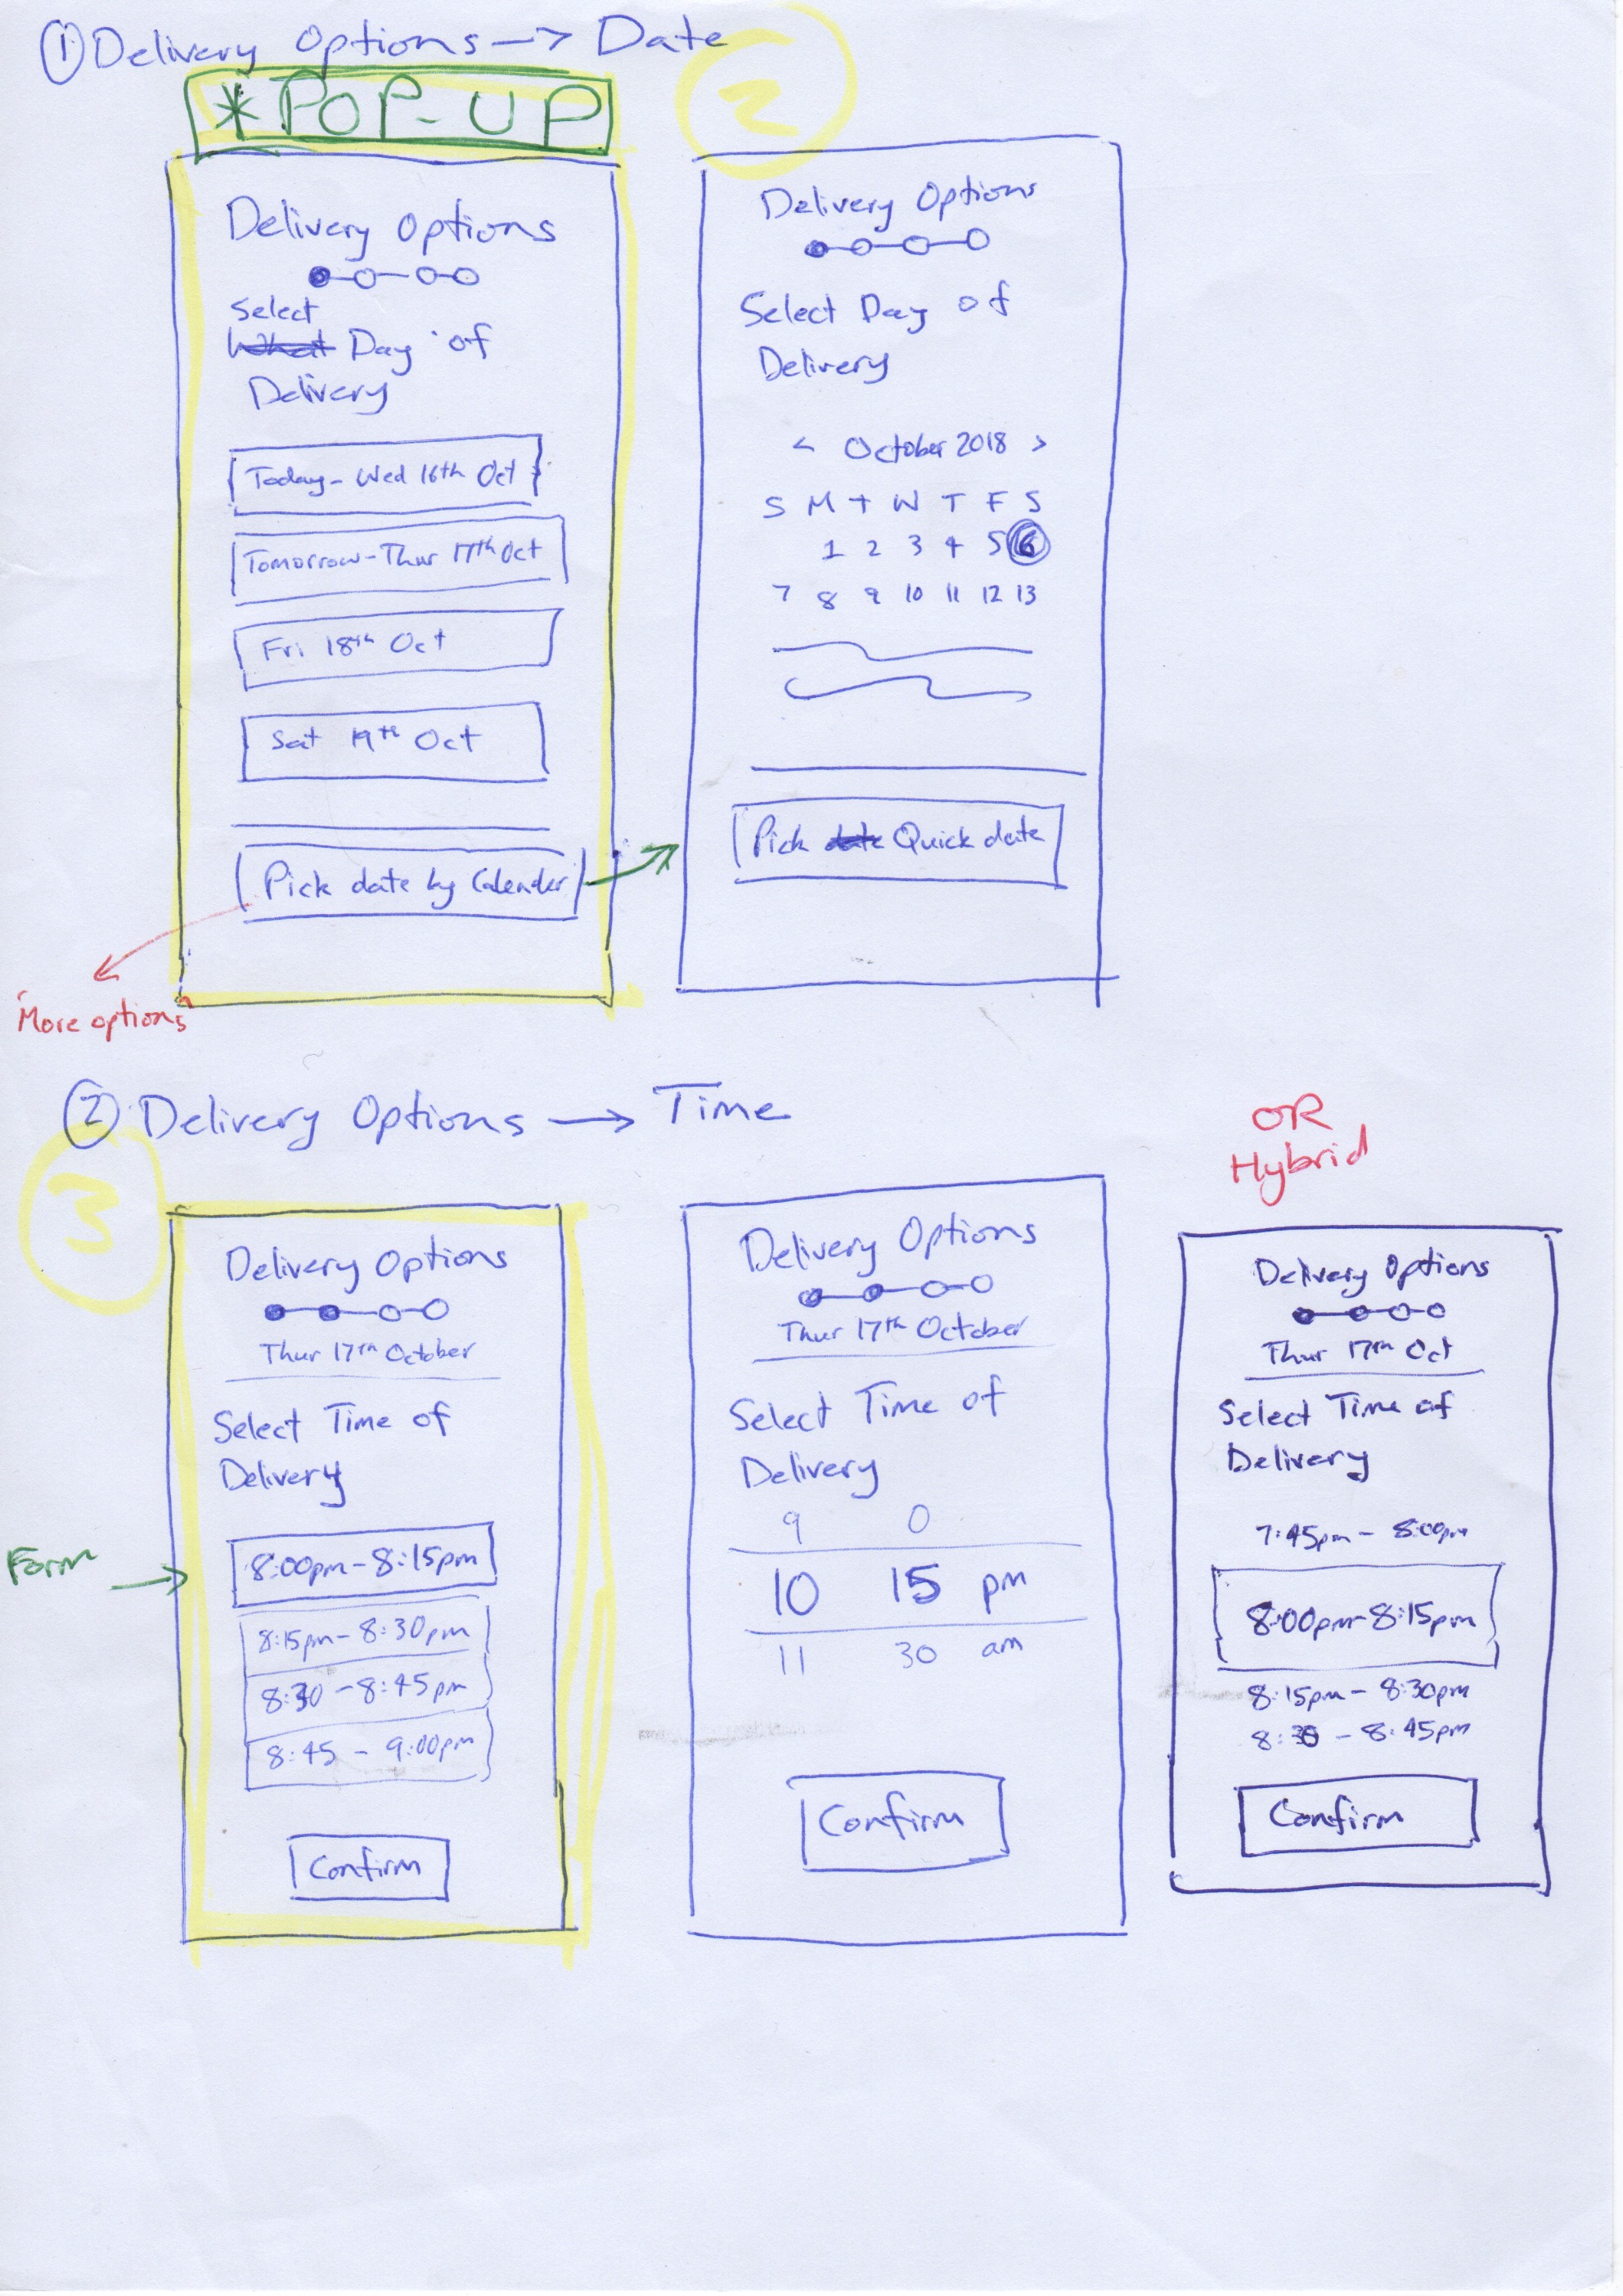 ① Delivery Options → Date
* POP-UP
2
Delivery Options
Select
What Day of
Delivery
Today - Wed 16th Oct
Tomorrow - Thur 17th Oct
Fri 18th Oct
Sat 19th Oct
Pick date by Calender
"More options"
Delivery Options
Select Day of
Delivery
< October 2018 >
S M T W T F S
1 2 3 4 5 6
7 8 9 10 11 12 13
Pick date Quick date
② Delivery Options → Time
3
Form →
Delivery Options
Thur 17th October
Select Time of
Delivery
8:00pm - 8:15pm
8:15pm - 8:30pm
8:30 - 8:45pm
8:45 - 9:00pm
Confirm
Delivery Options
Thur 17th October
Select Time of
Delivery
9 0
10 15 pm
11 30 am
Confirm
OR
Hybrid
Delivery Options
Thur 17th Oct
Select Time of
Delivery
7:45pm - 8:00pm
8:00pm - 8:15pm
8:15pm - 8:30pm
8:30 - 8:45pm
Confirm